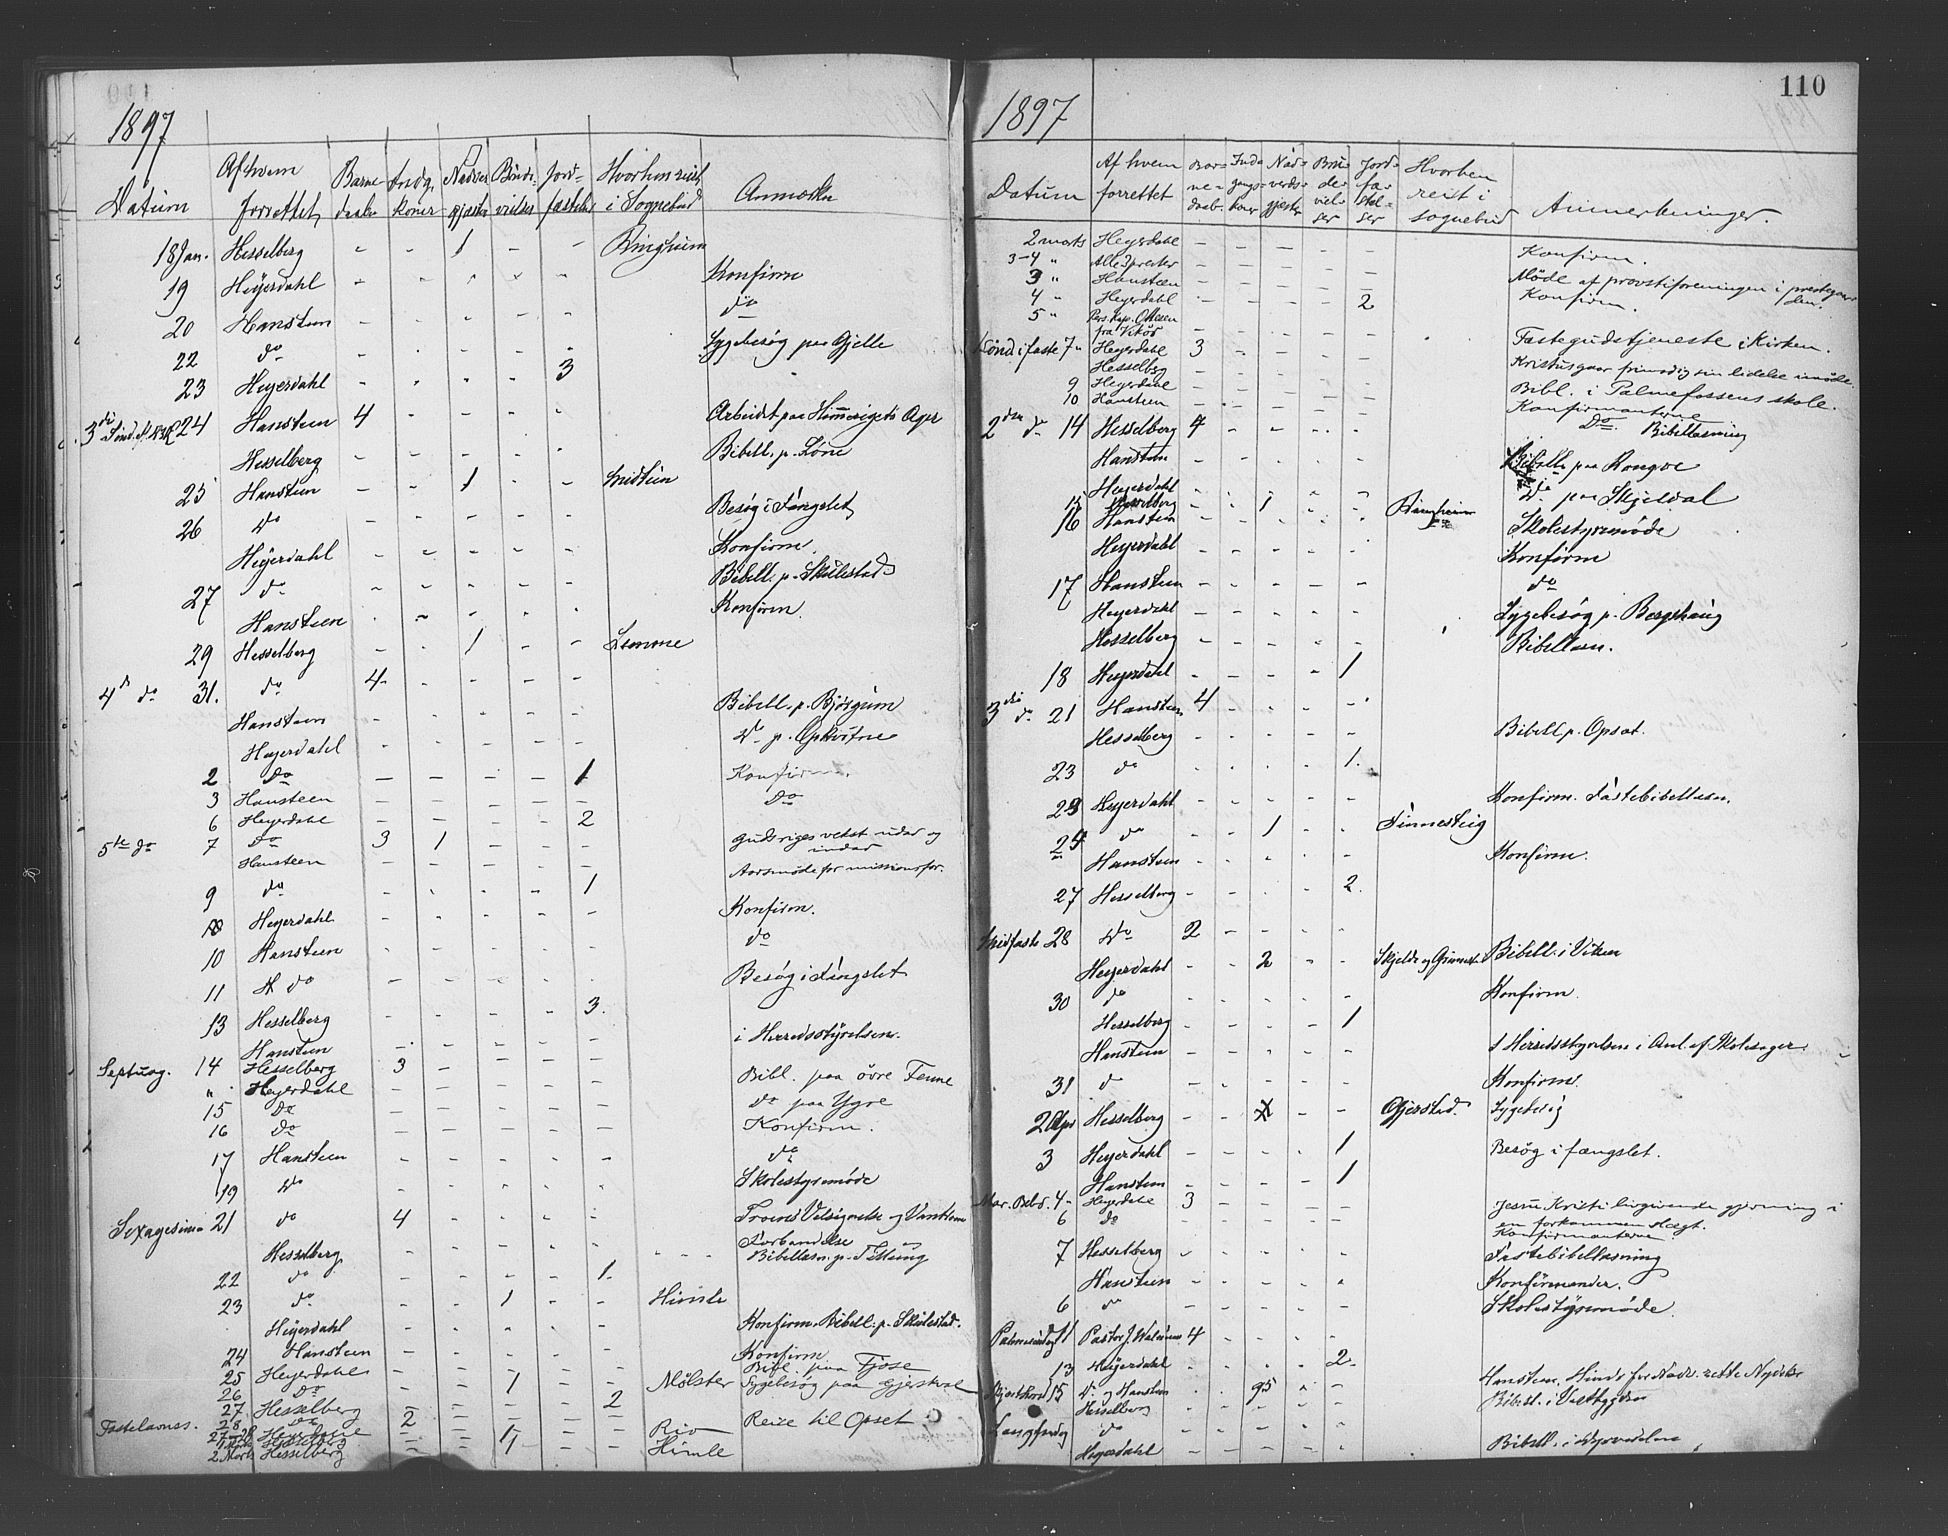 1897
Datum Af hvem forrettet Barnedaab Indg. koner Nadver gjæster Brude- vielser Jord- fæstelser Hvorhen reist i Sognebud Anmærkn
18 Jan. Hesselberg - - 1 - - Ringheim
19 Heyerdahl - - - - - Konfirm
20 Hansteen - - - - - do
22 do - - - - - Sygebesøg paa Gjelle
23 Heyerdahl - - - - 3
3die Sønd. 24 Hansteen 4 - - - - Arbeidet paa Himmerigets Ager
Hesselberg - - - - - Bibell. p. Løne
25 Hansteen - - 1 - - Midtun
26 do - - - - - Besøg i Fængslet
Heyerdahl - - - - - Konfirm.
27 do - - - - - Bibell. p. Skulestad
Hansteen - - - - - Konfirm.
29 Hesselberg - - 1 - - Lemme
4de do 31. do 4 - - - -
Hansteen - - - - - Bibell. p. Bjørgum
Heyerdahl - - - - - do p. Opkvitne
2 do - - - - 1 Konfirm.
3 Hansteen - - - - - do
6 Heyerdahl - - - - 2
5te do 7 do 3 1 - - - Gudsriges vekst udad og indad
Hansteen - - - - - Aarsmøde for missionsfor.
9 do - - - - 1
10 Heyerdahl - - - - - Konfirm.
10 Hansteen - - - - - do
11 do - - - - - Besøg i Fængslet
13 Hesselberg - - - - 3.
Hansteen - - - - - i Herredsstyrelsen.
Septuag. 14 Hesselberg 3 - - - -
" Heyerdahl - - - - - Bibl. paa øvre Fenne
15 do - - - - - do paa Ygre
16 do - - - - - Konfirm.
17 Hansteen - - - - - do
19 do - - - - - Skolestyremøde
Sexagesima 21 do 4 - - - - Troens Velsignelse og Vantroens Forbandelse
Hesselberg - - - - - Bibellæsn. p. Tillung
22 do - - - - 1.
23 do - - 1 - - Himle
Heyerdahl - - - - - Konfirm. Bibell. p. Skulestad.
24 Hansteen - - - - - Konfirm
25 Heyerdahl - - - - - Bibl. paa Tjøse
26 do - - 1 - - Mølster Sygebesøg paa Gjerskval
27 Hesselberg - - - - 2
Fastelavnss. 28 do 2 - - - - Reise til Opset
27-28 Heyerdahl - - 1 - - Rio
1 Marts Hesselberg
2 Marts Hesselberg - - 1 - - Himle
110
1897
Datum Af hvem forrettet Barnedaab Indgangskoner Nadverdsgjester Brudevielser Jordfæstelser Hvorhen reist i sognebud Anmerkninger.
2 marts Heyerdahl - - - - - Konfirm.
3-4 " Alle 3 prester - - - - - Møde af provstiforeningen i prestegaarden
3 " Hansteen - - - - - Konfirm.
4 " Heyerdahl - - - - 2
5 " Pers. Kap. Ottesen fra Vikør - - - - - Fastegudstjeneste i Kirken.
1 Sønd i faste 7 " Heyerdahl 3 - - - - Kristus gaar frimodig sin lidelse imøde
Hesselberg - - - - - Bibl. i Palmefossens skole.
9 Heyerdahl - - - - - Konfirmanterne
10 Hansteen - - - - - Do Bibellæsning
2den do 14 Hesselberg 4 - - - -
Hansteen - - - - - Bibell. paa Rongve
Heyerdahl - - - - - do paa Skjeldal
15 Hesselberg - - 1 - - Ringheim
16 Hansteen - - - - - Skolestyremøde
Heyerdahl - - - - - Konfirm
17 Hansteen - - - - - do
Heyerdahl - - - - - Sygebesøg p. Bergshaug
Hesselberg - - - - - Bibellæsn.
18 Heyerdahl - - - - 1
3die do 21 Hansteen 4 - - - -
Hesselberg - - - - - Bibell p. Opsat.
23 do - - - - 1.
23 Heyerdahl - - - - - Konfirm. Fastebibellæsn.
24 do - - 1 - - Finnesteig
25 Hansteen - - - - - Konfirm.
27 Hesselberg - - - - 2.
Midfaste 28 do 2 - - - -
Heyerdahl - - 2 - - Skjelde og Bibell. i Viken
30 do - - - - - Konfirm.
Hesselberg - - - - 1
Hansteen - - - - - I Herredsstyrelsen i Anl. af Skolesager.
31 do - - - - - Konfirm.
2 Apr Hesselberg - - X - - Gjerstad.
3 Heyerdahl - - - - 1 Besøg i fængslet.
Hansteen - - - - 1
Mar. Beb.d. 4 Heyerdahl 3 - - - - Jesu Kristi livgivende gjerning i en forkommen slægt.
6 do - - - - - Konfirmanterne
7 Hesselberg - - - - - Fastebibellæsning
Hansteen - - - - - Konfirmander.
6 do - - - - - Skolestyremøde
Palmesøndag 11 Pastor J. 4 - - - -
13 Heyerdahl - - - - 2
Skjærtorsd 15 do og Hansteen - - 95 - - Hansteen
Hesselberg - - - - - Bibell. i Vestbygden
Langfredag do
Heyerdahl - - - - - Bibell. i